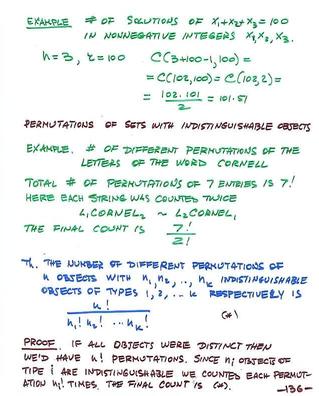 EXAMPLE # OF SOLUTIONS OF x₁+x₂+x₃=100
IN NONNEGATIVE INTEGERS x₁, x₂, x₃.
n=3, r=100 C(3+100-1, 100) =
= C(102,100) = C(102,2) =
= 102·101 / 2 = 101·51
PERMUTATIONS OF SETS WITH INDISTINGUISHABLE OBJECTS
EXAMPLE. # OF DIFFERENT PERMUTATIONS OF THE
LETTERS OF THE WORD CORNELL
TOTAL # OF PERMUTATIONS OF 7 ENTRIES IS 7!
HERE EACH STRING WAS COUNTED TWICE
L₁CORNEL₂ ~ L₂CORNEL₁
THE FINAL COUNT IS 7! / 2!
Th. THE NUMBER OF DIFFERENT PERMUTATIONS OF
n OBJECTS WITH n₁, n₂, .., nₖ INDISTINGUISHABLE
OBJECTS OF TYPES 1, 2, ... k RESPECTIVELY IS
n! / n₁! n₂! ... nₖ! (*)
PROOF. IF ALL OBJECTS WERE DISTINCT THEN
WE'D HAVE n! PERMUTATIONS. SINCE nᵢ OBJECTS OF
TYPE i ARE INDISTINGUISHABLE WE COUNTED EACH PERMUT-
ATION nᵢ! TIMES. THE FINAL COUNT IS (*).
—136—